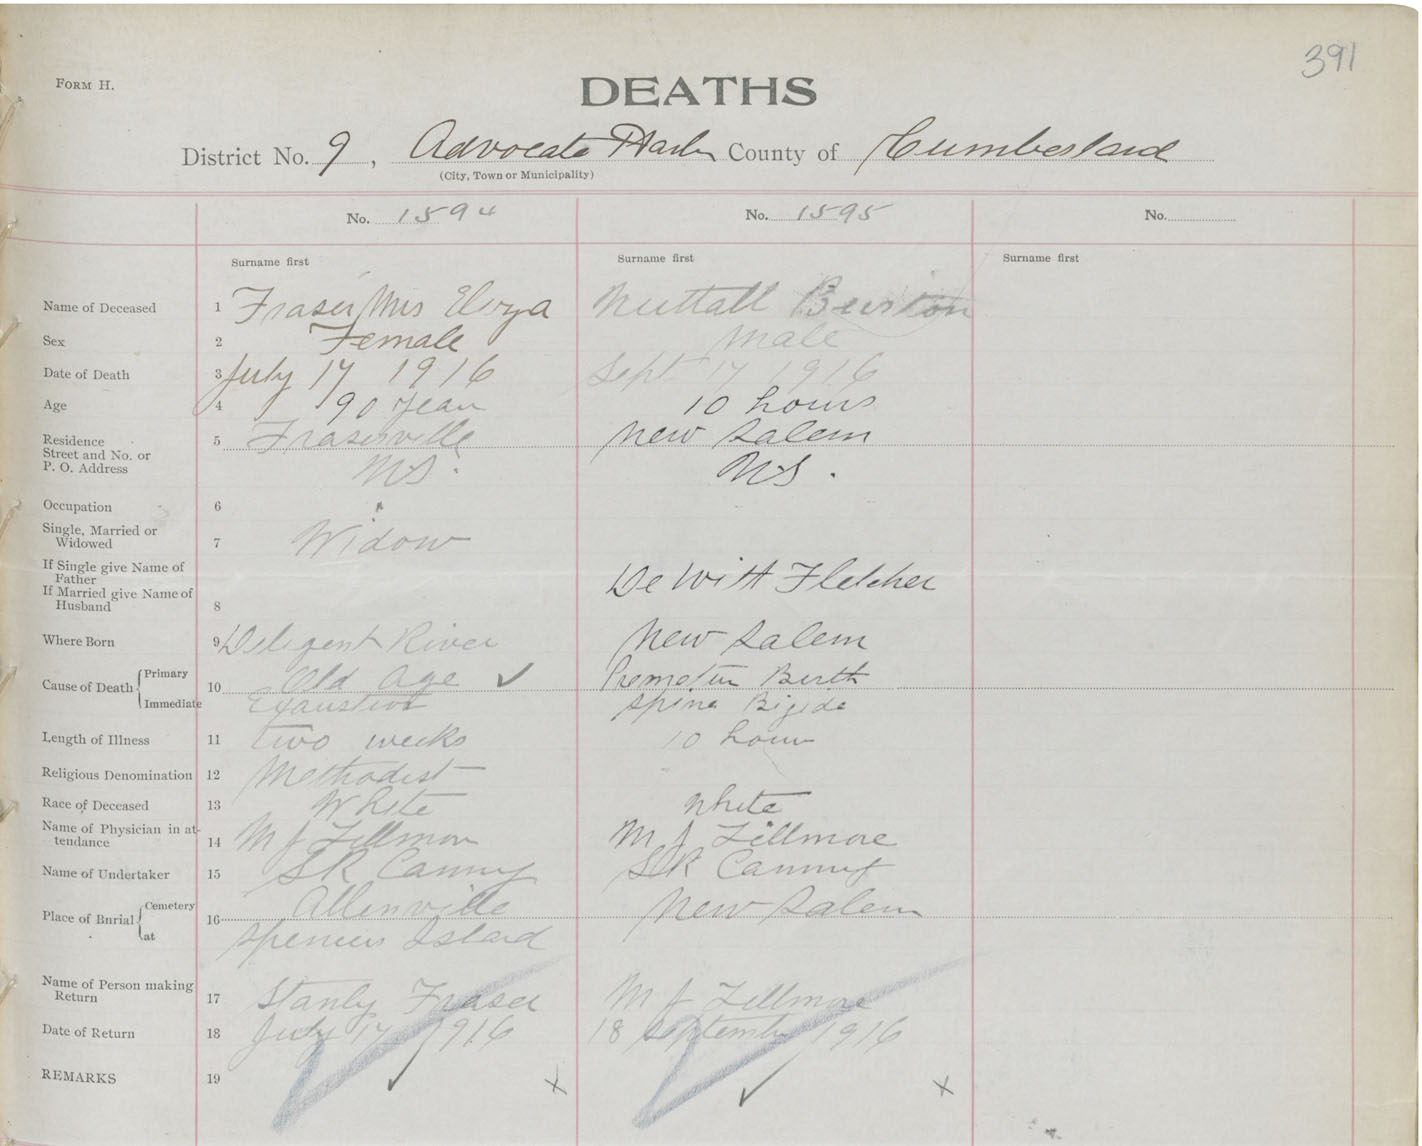 391
FORM H.
DEATHS
District No. 9, Advocate Harbr County of Cumberland
(City, Town or Municipality)
No. 1594 No. 1595 No.
Surname first Surname first Surname first
Name of Deceased 1 Fraser Mrs Eloza Nuttall Burton
Sex 2 Female Male
Date of Death 3 July 17 1916 Sept 17 1916
Age 4 90 year 10 hours
Residence
Street and No. or
P. O. Address 5 Fraserville New Salem
NS. NS.
Occupation 6
Single, Married or
Widowed 7 Widow
If Single give Name of
Father
If Married give Name of
Husband 8 DeWitt Fletcher
Where Born 9 Deligent River New Salem
Cause of Death Primary 10 Old Age ✓ Premetur Berth
Immediate Exaustion Spina Bifida
Length of Illness 11 two weeks 10 hour
Religious Denomination 12 Methodist
Race of Deceased 13 White White
Name of Physician in at-
tendance 14 M J Fillmore M J Fillmore
Name of Undertaker 15 SR SR
Place of Burial Cemetery 16 Allenville New Salem
at Spencers Island
Name of Person making
Return 17 Stanly Fraser M J Fillmore
Date of Return 18 July 17 1916 18 September 1916
REMARKS 19 ✓ x ✓ x